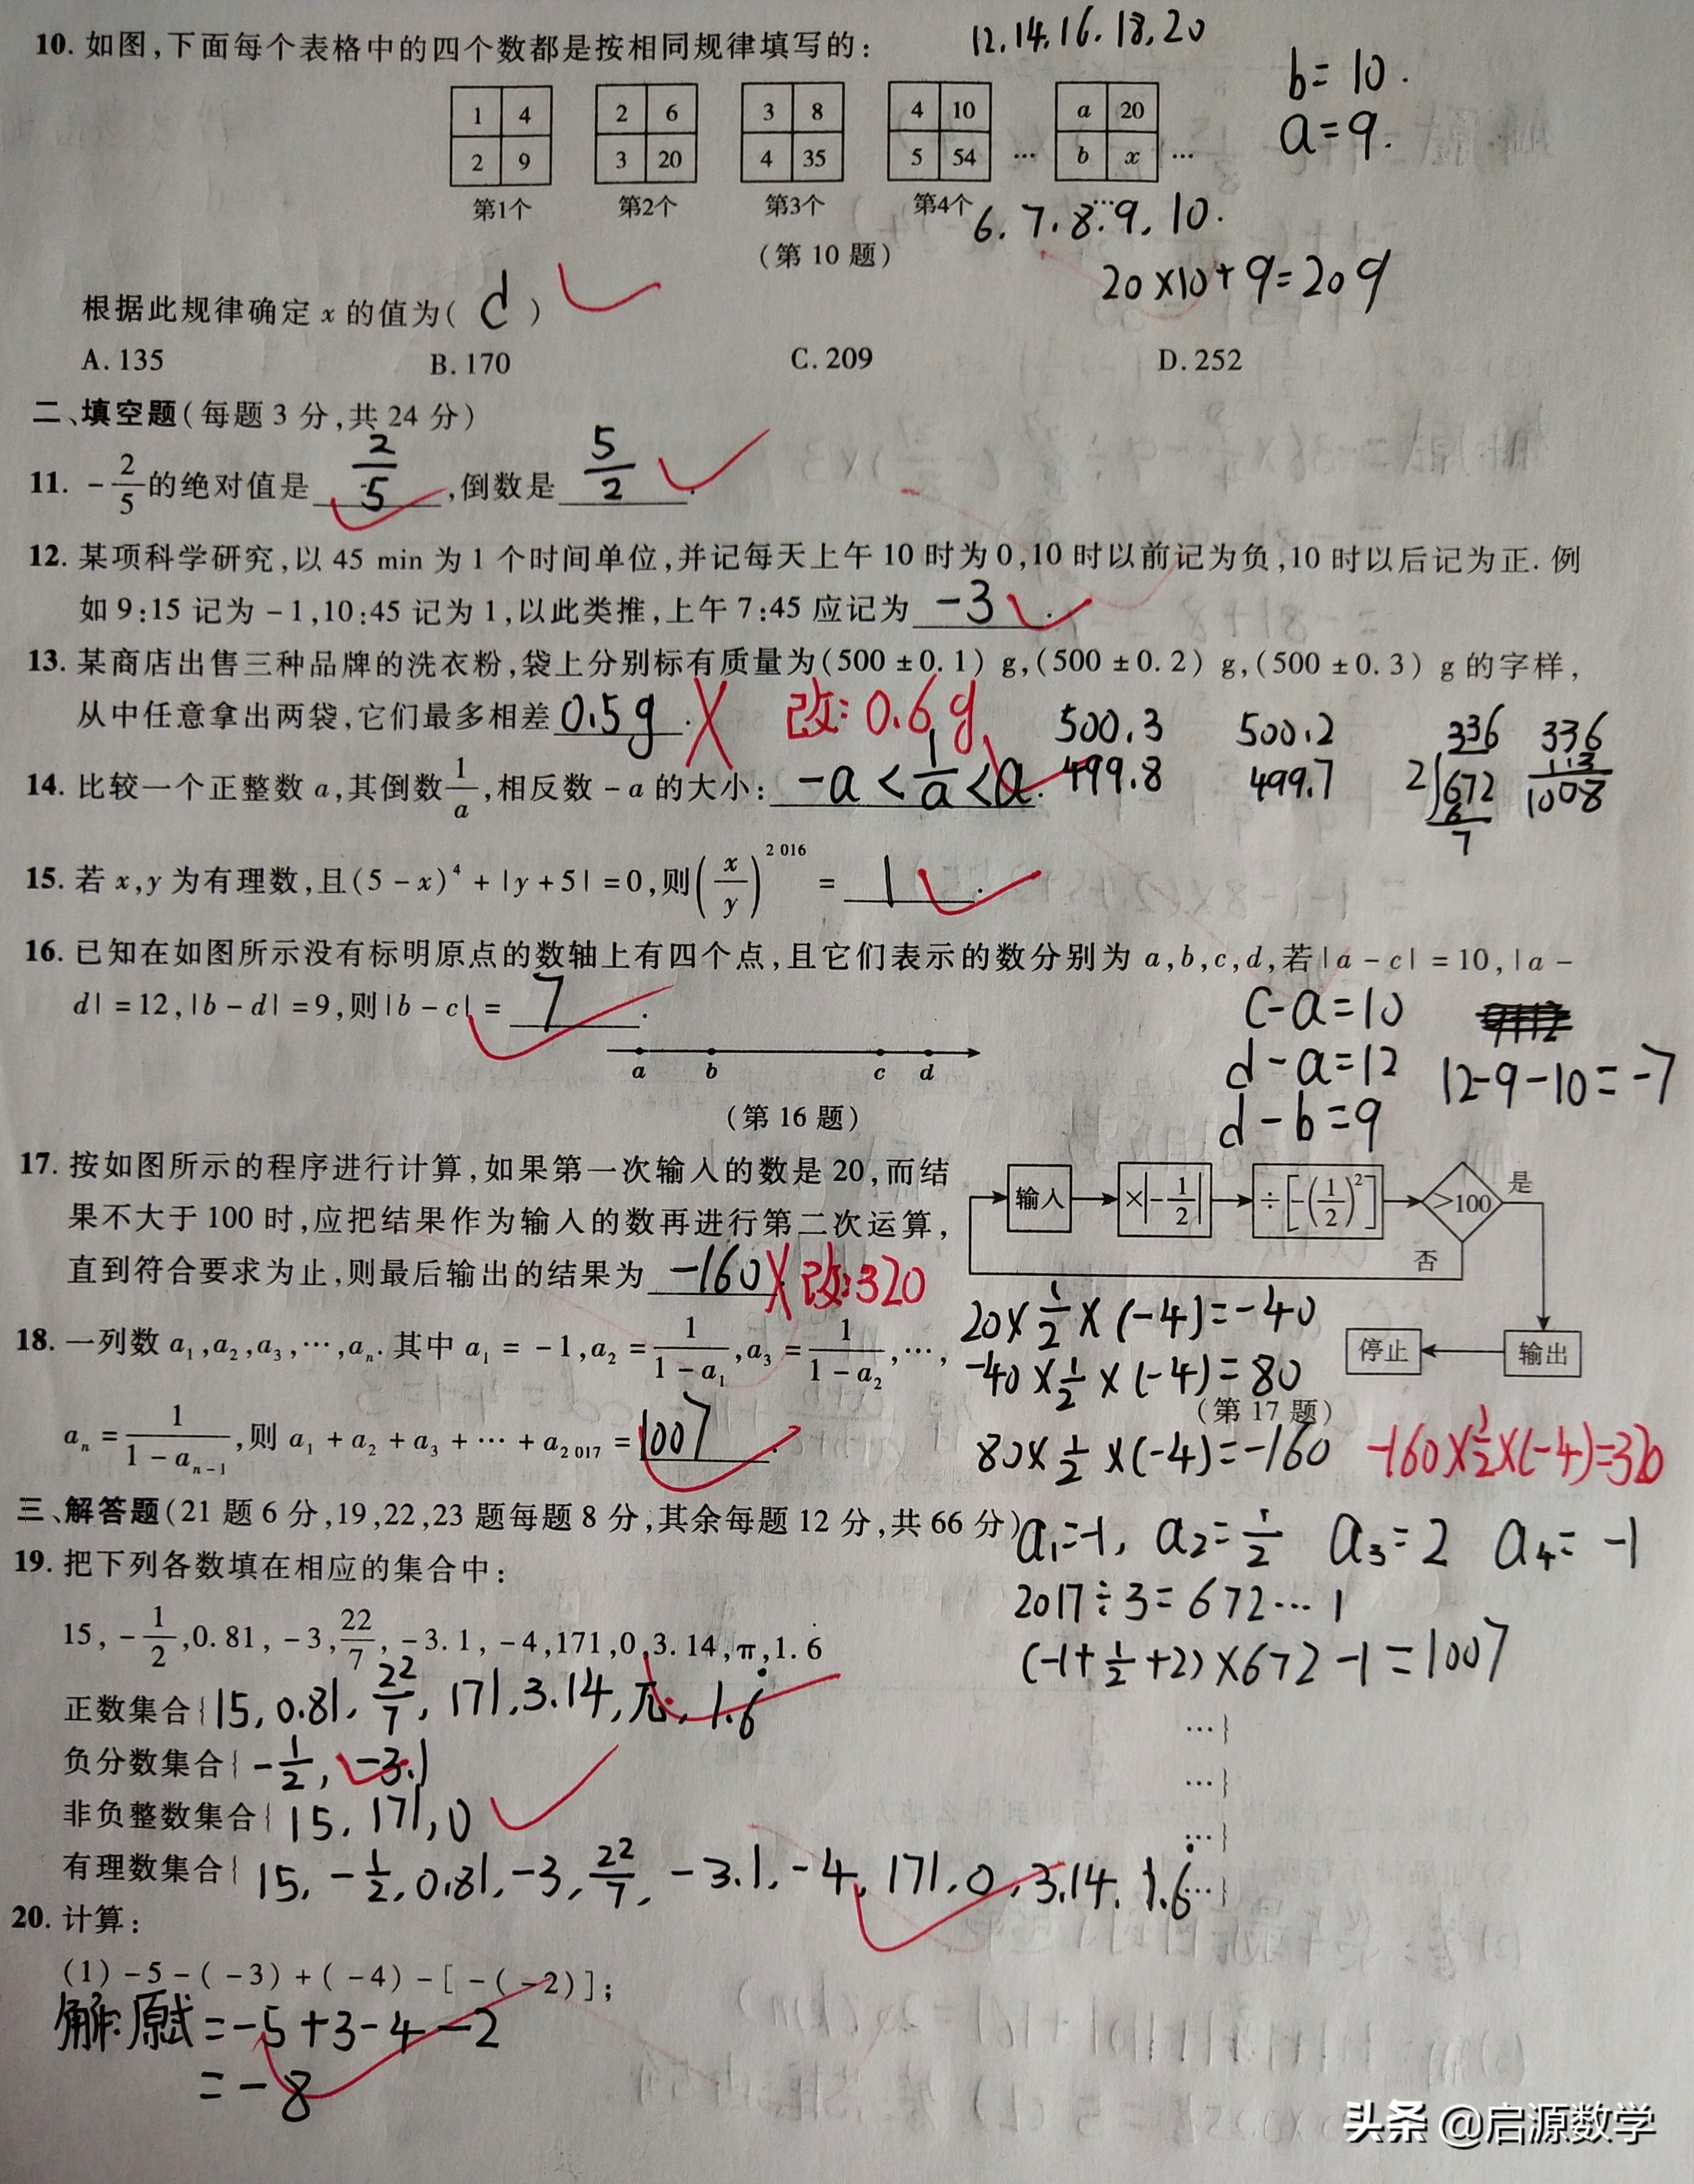 10. 如图,下面每个表格中的四个数都是按相同规律填写的:
12.14.16.18.20
b=10.
a=9.
1 4 2 6 3 8 4 10 a 20
2 9 3 20 4 35 5 54 … b x …
第1个 第2个 第3个 第4个 …
6.7.8.9.10.
(第10题)
20×10+9=209
根据此规律确定 x 的值为( d )
A. 135 B. 170 C. 209 D. 252
二、填空题(每题3分,共24分)
11. -2/5的绝对值是 2/5 ,倒数是 5/2 .
12. 某项科学研究,以 45 min 为 1 个时间单位,并记每天上午 10 时为 0,10 时以前记为负,10 时以后记为正. 例
如 9:15 记为 -1,10:45 记为 1,以此类推,上午 7:45 应记为 -3 .
13. 某商店出售三种品牌的洗衣粉,袋上分别标有质量为(500±0.1) g,(500±0.2) g,(500±0.3) g 的字样,
从中任意拿出两袋,它们最多相差 0.5g . 改:0.6g
500.3 500.2 336 336
499.8 499.7 2 672 1008
6
7
14. 比较一个正整数 a,其倒数1/a,相反数 -a 的大小: -a<1/a<a .
15. 若 x,y 为有理数,且(5-x)⁴+|y+5|=0,则(x/y)²⁰¹⁶= 1 .
16. 已知在如图所示没有标明原点的数轴上有四个点,且它们表示的数分别为 a,b,c,d,若|a-c|=10,|a-
d|=12,|b-d|=9,则|b-c|= 7 .
c-a=10
d-a=12 12-9-10=-7
d-b=9
a b c d
(第16题)
17. 按如图所示的程序进行计算,如果第一次输入的数是 20,而结
果不大于 100 时,应把结果作为输入的数再进行第二次运算,
直到符合要求为止,则最后输出的结果为 -160 . 改:320
输入 ×|-1/2| ÷[-(1/2)²] >100 是
否
停止 输出
(第17题)
20×1/2×(-4)=-40
-40×1/2×(-4)=80
80×1/2×(-4)=-160 -160×1/2×(-4)=320
18. 一列数 a₁,a₂,a₃,…,aₙ. 其中 a₁=-1,a₂=1/(1-a₁),a₃=1/(1-a₂),…,
aₙ=1/(1-aₙ₋₁),则 a₁+a₂+a₃+…+a₂₀₁₇= 1007 .
三、解答题(21题6分,19,22,23题每题8分,其余每题12分,共66分)
a₁=-1, a₂=1/2 a₃=2 a₄=-1
2017÷3=672…1
(-1+1/2+2)×672-1=1007
19. 把下列各数填在相应的集合中:
15,-1/2,0.81,-3,22/7,-3.1,-4,171,0,3.14,π,1.6̇
正数集合{15, 0.81, 22/7, 171, 3.14, π, 1.6̇ …}
负分数集合{-1/2, -3.1 …}
非负整数集合{15, 171, 0 …}
有理数集合{15, -1/2, 0.81, -3, 22/7, -3.1, -4, 171, 0, 3.14, 1.6̇ …}
20. 计算:
(1) -5-(-3)+(-4)-[-(-2)];
解:原式=-5+3-4-2
=-8
头条 @启源数学